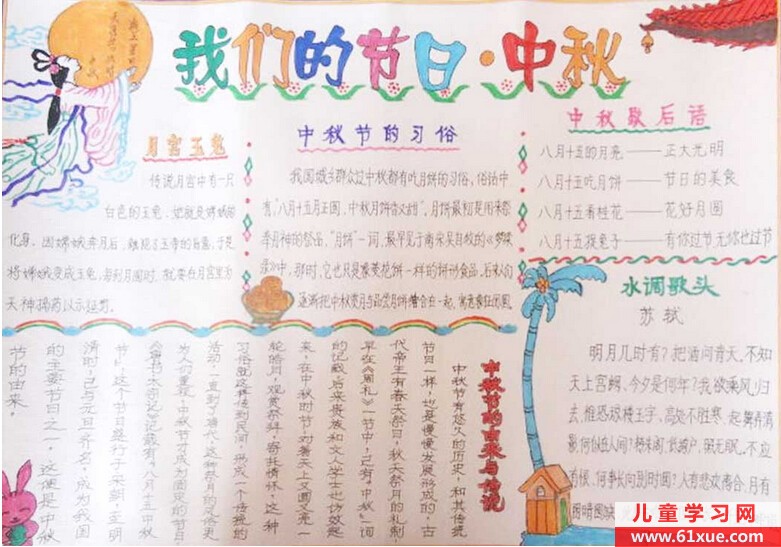 海上
天涯
中秋
我们的节日·中秋
月宫玉兔
传说月宫中有一只
白色的玉兔，她就是嫦娥的
化身。因嫦娥奔月后，触犯了玉帝的旨意，于是
将嫦娥变成玉兔，每到月圆时，就要在月宫里为
天神捣药以示惩罚。
中秋节的习俗
我国城乡群众过中秋都有吃月饼的习俗，俗话中
有："八月十五月正圆，中秋月饼香又甜"。月饼最初是用来祭
奉月神的祭品，"月饼"一词，最早见于南宋吴自牧的《梦粱
录》中，那时，它也只是像菱花饼一样的饼形食品，后来人们
逐渐把中秋赏月与品尝月饼结合在一起，寓意
中秋歇后语
八月十五的月亮——正大光明
八月十五吃月饼——节日的美食
八月十五看桂花——花好月圆
八月十五捉兔子——有你过节无你也过节
水调歌头
苏轼
明月几时有？把酒问青天，不知
天上宫阙、今夕是何年？我欲乘风归
去，惟恐琼楼玉宇，高处不胜寒．起舞弄清
影，何似在人间？转朱阁，低绮户，照无眠，不应
有恨，何事长向别时圆？人有悲欢离合，月有
阴晴圆缺
中秋节的由来与传说
中秋节有悠久的历史，和其他
节日一样，也是慢慢发展形成的，古
代帝王有春天祭日，秋天祭月的礼制，
早在《周礼》一书中，已有"中秋"一词
的记载，后来贵族和文人学士也仿效起
来，在中秋时节，对着天上又圆又亮一
轮皓月，观赏祭拜，寄托情怀，这种
习俗就这样传到民间，形成一个传统的
活动，一直到了唐代，这种祭月的风俗更
为人们重视，中秋节才成为固定的节日，
《唐书·太宗记》记载有"八月十五中秋
节"，这个节日盛行于宋朝，至明
清时，已与元旦齐名，成为我国
的主要节日之一，这便是中秋
节的由来。
儿童学习网
www.61xue.com